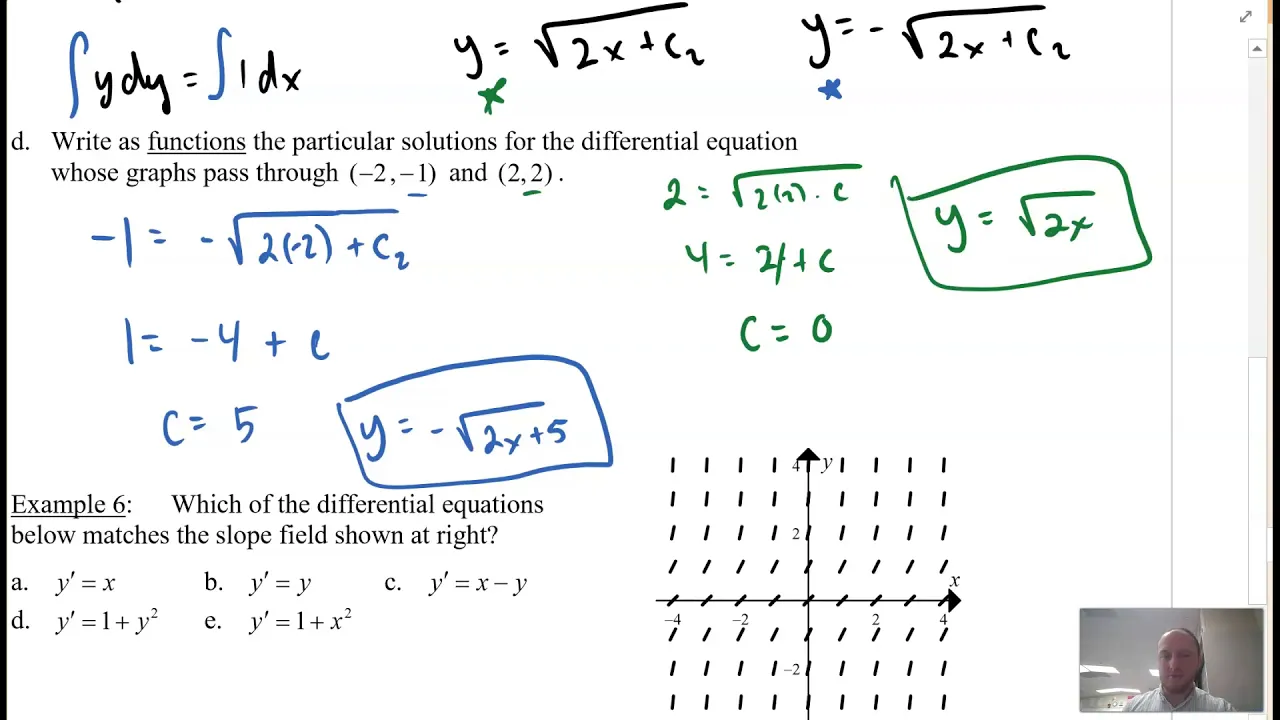 ∫ y dy = ∫ 1 dx
y = √(2x + C₂)
y = - √(2x + C₂)
d. Write as functions the particular solutions for the differential equation
whose graphs pass through (−2, −1) and (2, 2).
-1 = - √(2(-2) + C₂)
1 = -4 + C
C = 5
y = - √(2x + 5)
2 = √(2(2) · C
4 = 4 + C
C = 0
y = √2x
Example 6: Which of the differential equations
below matches the slope field shown at right?
a. y′ = x b. y′ = y c. y′ = x − y
d. y′ = 1 + y² e. y′ = 1 + x²
4 y
2
x
−4 −2 2 4
−2